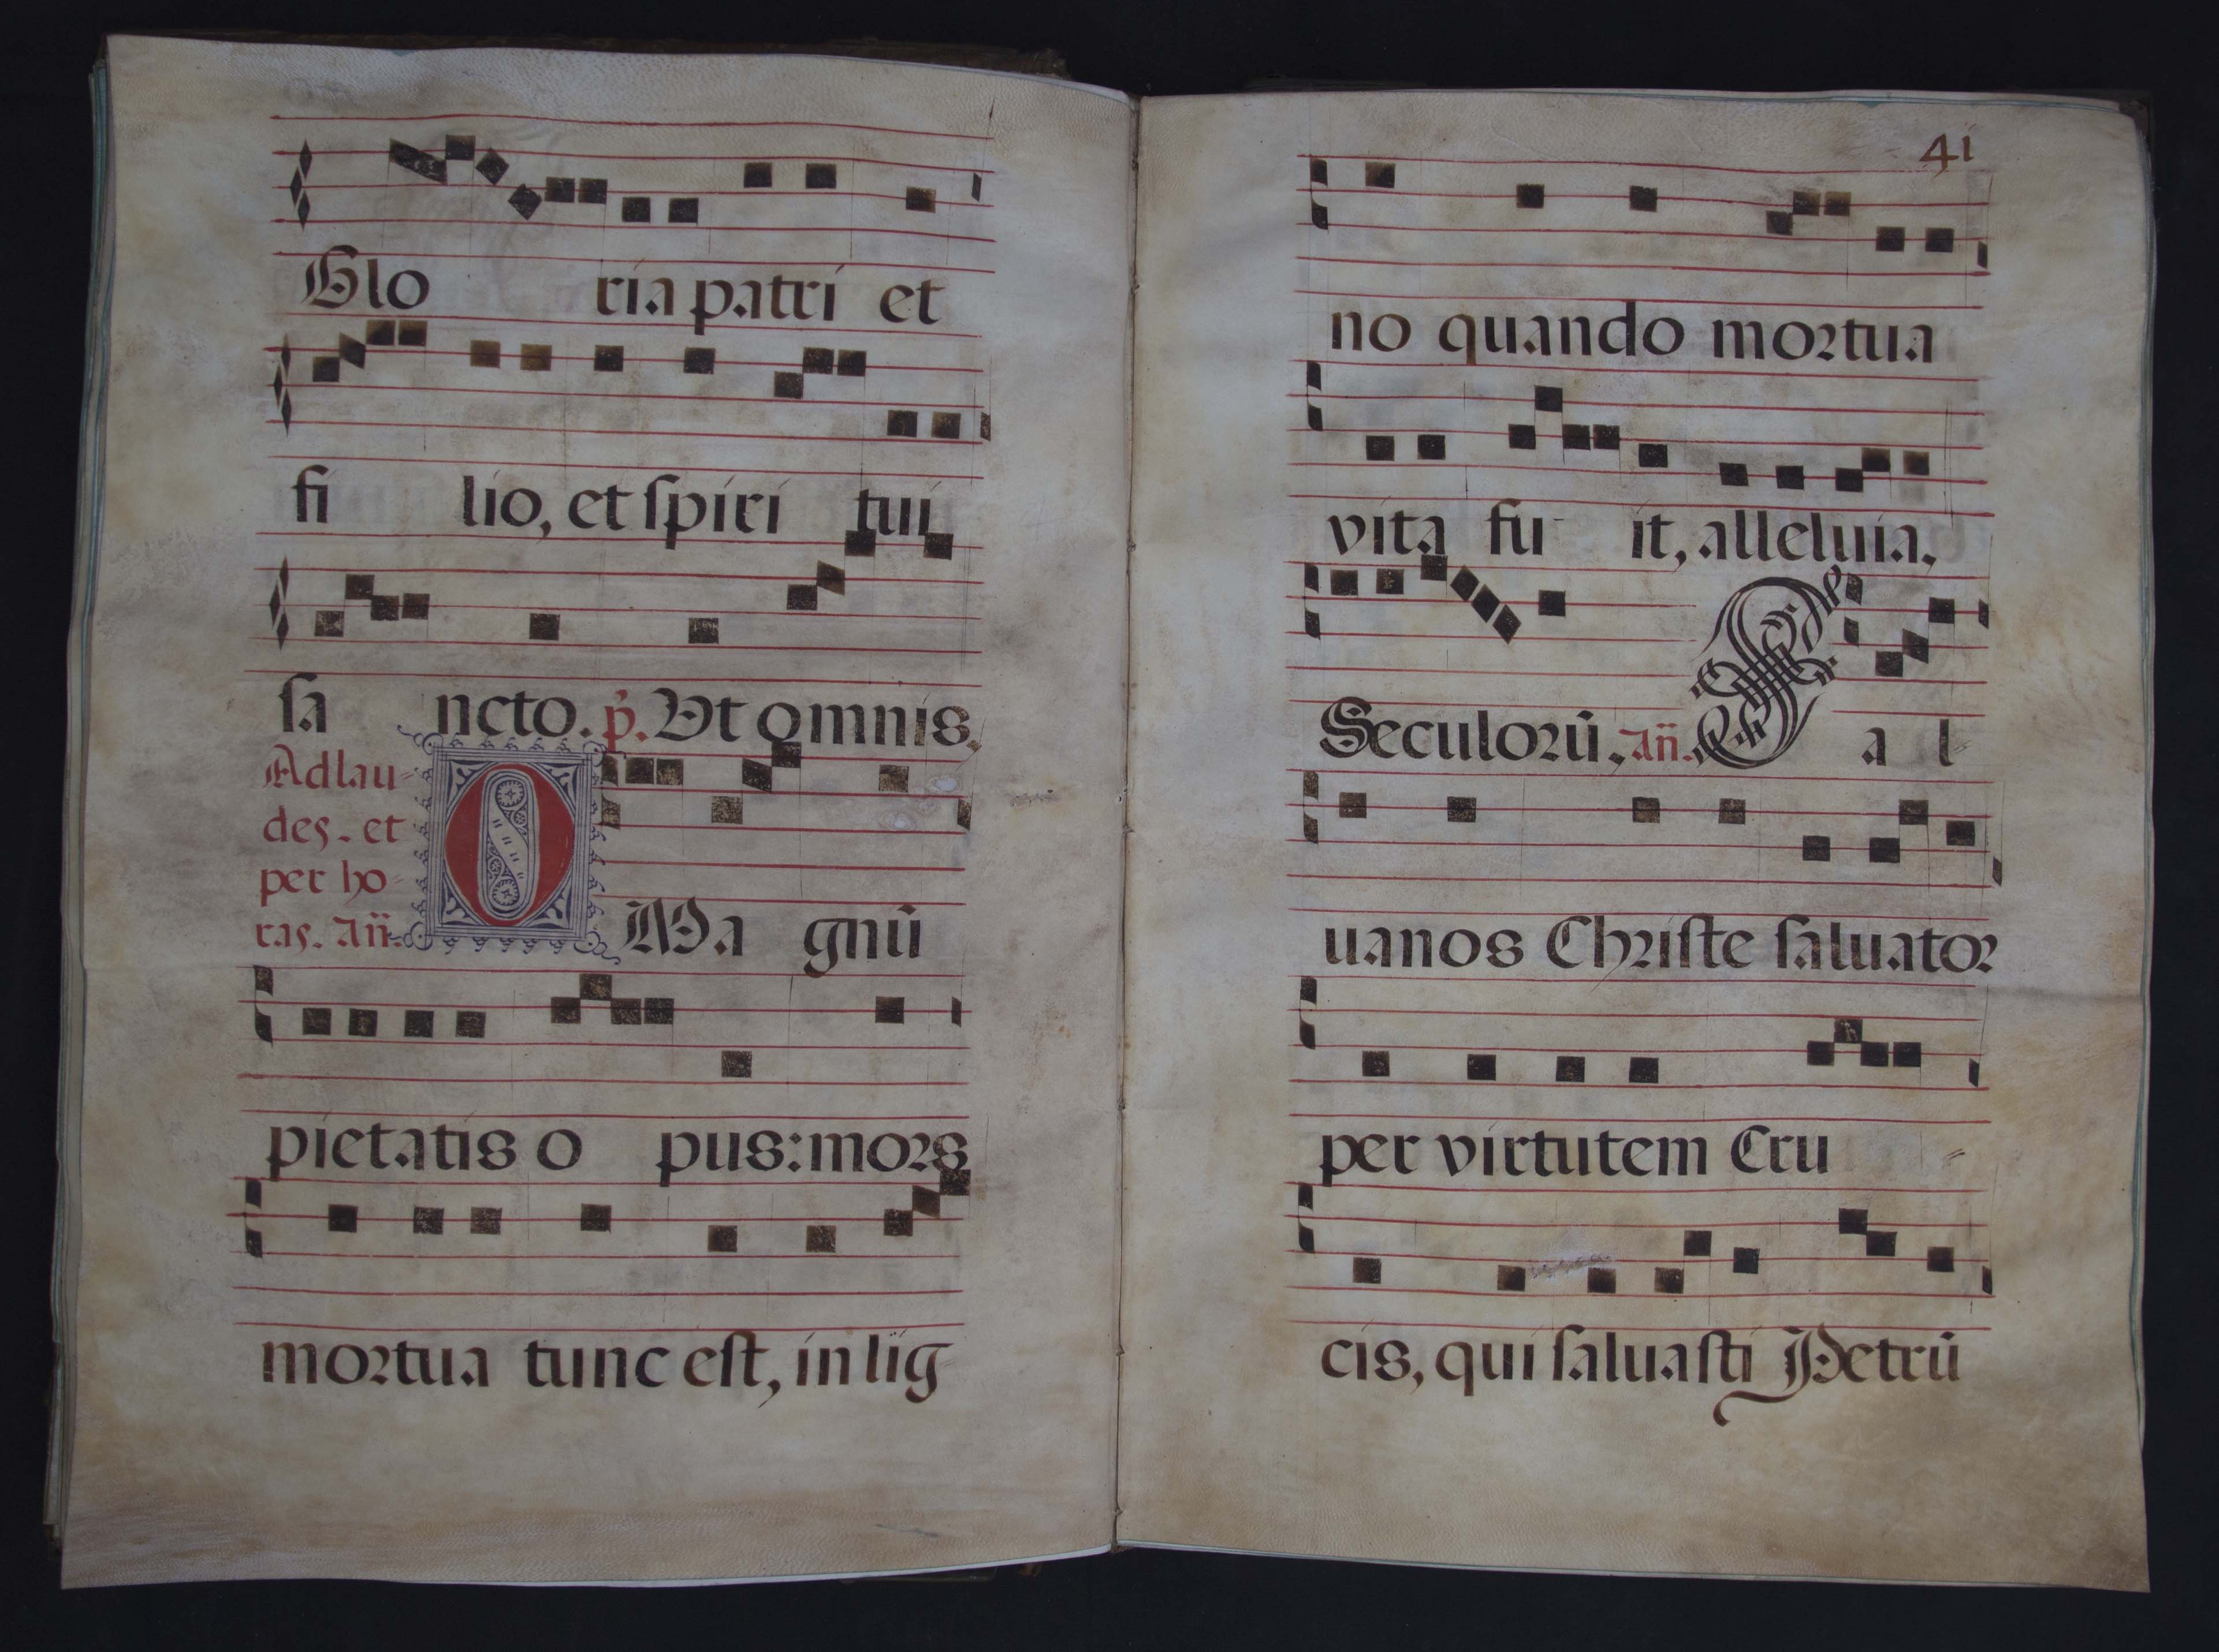 Glo ria patri et
fi lio, et spiri tui
sa ncto. p̃. Ut omnis.
Ad lau-
des. et
per ho-
ras. Añ.
O Ma gnũ
pietatis o pus: mors
mortua tunc est, in lig
41
no quando mortua
vita fu it, alleluia.
Seculorũ. Añ. S a l-
uanos Christe saluator
per virtutem Cru -
cis, qui saluasti Petrũ